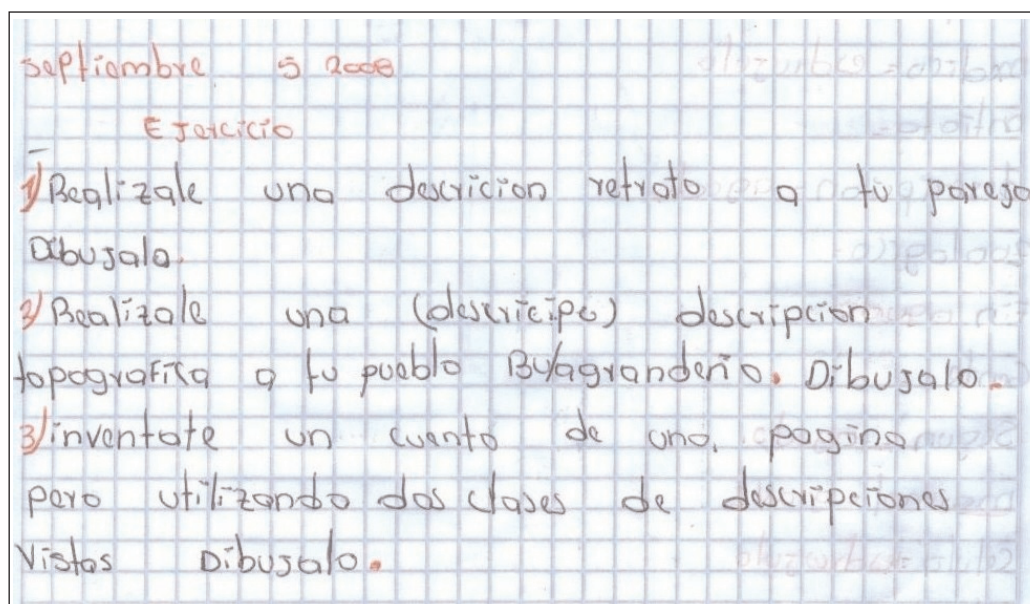 septiembre 5 2008
Ejercicio
1) Realizale una descricion retrato a tu pareja
Dibujala.
2) Realizale una (descricipe) descripcion
topografica a tu pueblo Bullagrandeño. Dibujalo.
3) inventate un cuento de una pagina
pero utilizando dos clases de descripciones
Vistas Dibujalo.